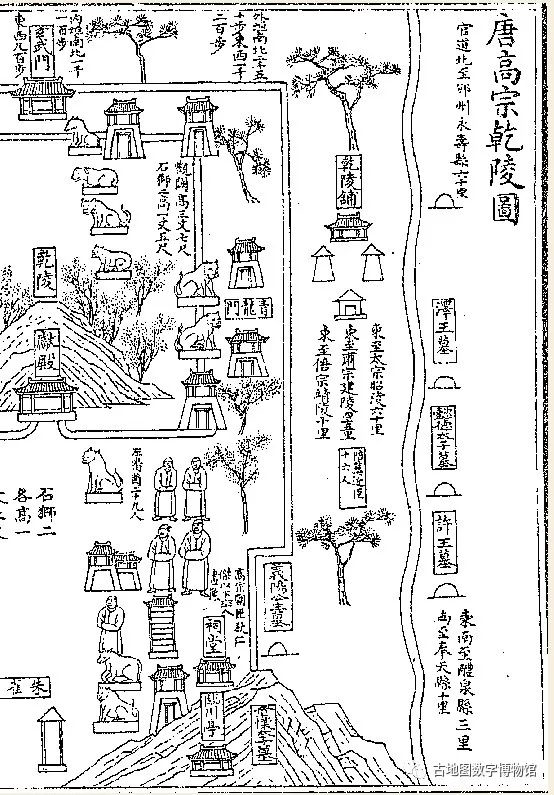 唐高宗乾陵圖
官道北至邠州永壽縣六十里
澤王墓
懿德太子墓
許王墓
東南至醴泉縣三里
西至奉天縣十里
乾陵舖
東至太宗昭陵六十里
東至肅宗建陵
東至僖宗靖陵十里
陪葬近臣
十六人
義陽公主墓
懷太子墓
外城南北一千五
十步東西一千
二百步
青龍門
高三丈七尺
石獅高一丈五尺
內城南北一千
一百步
東西九百步
玄武門
乾陵
獻殿
石蕃酋二十九人
石獅二
各高一
高宗朝臣狄仁
祠堂
臨川亭
朱雀
古地图数字博物馆